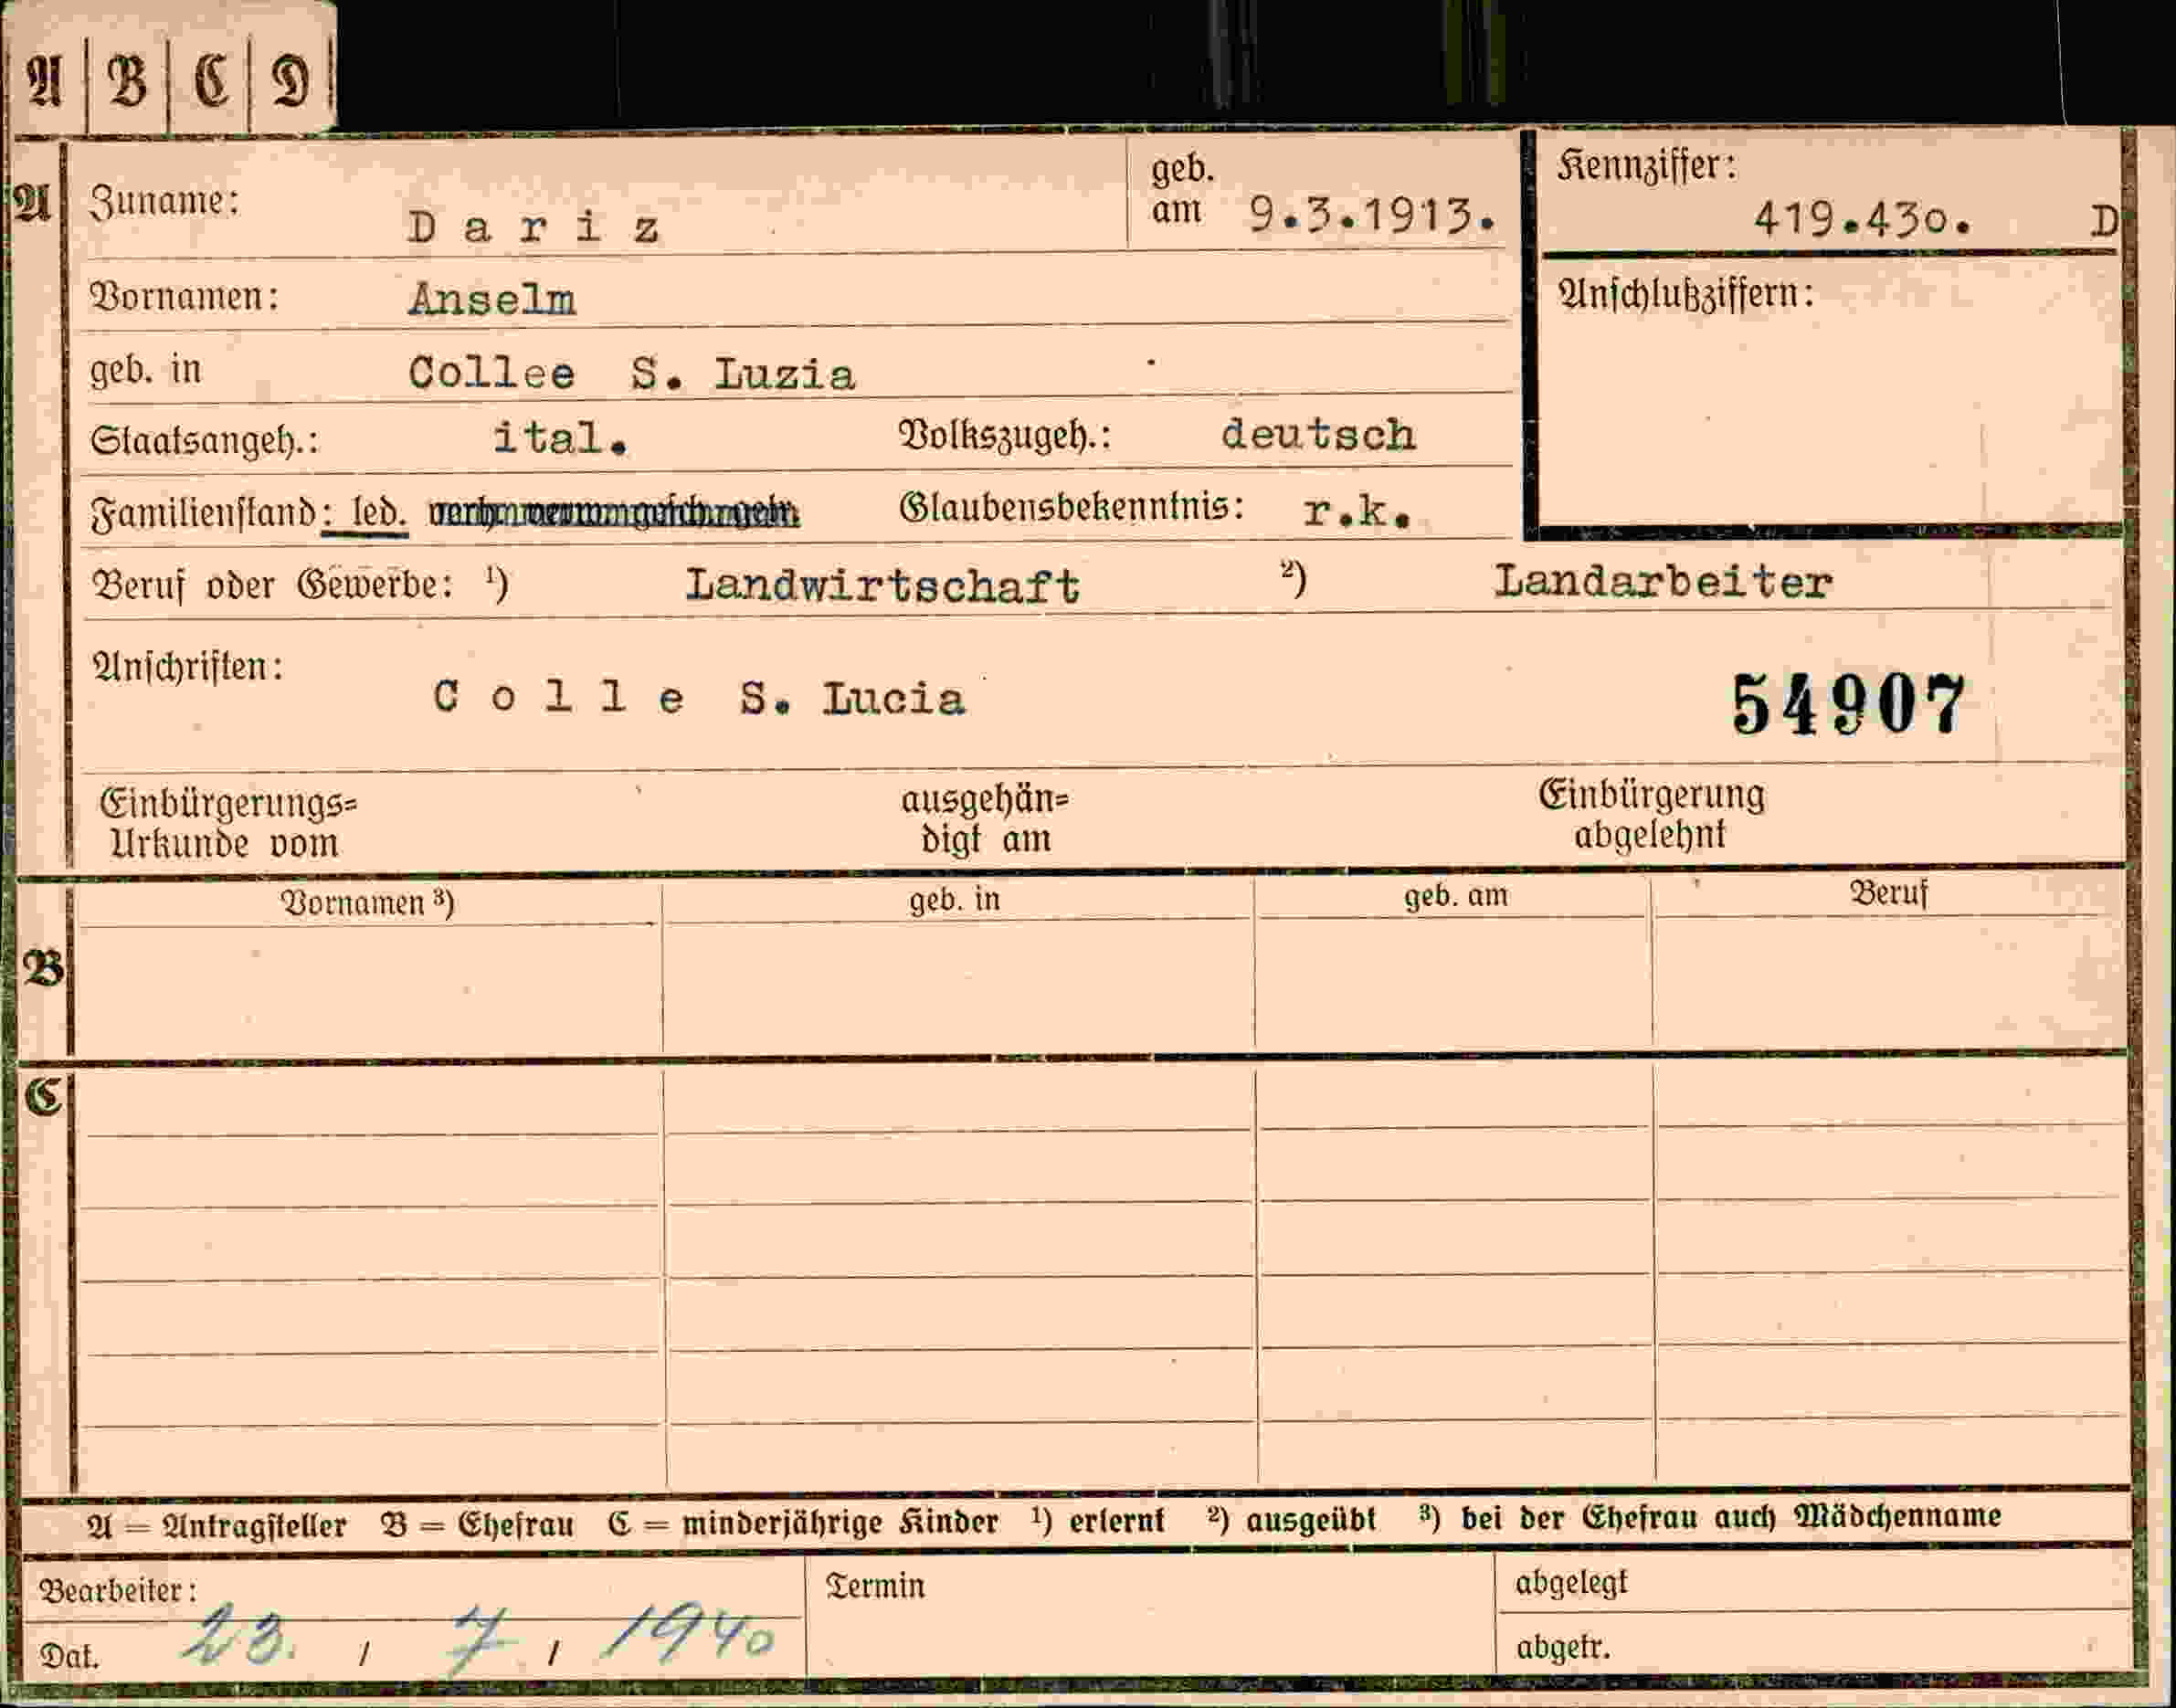 A | B | C | D
A
Zuname: Dariz
geb. am 9.3.1913.
Kennziffer: 419.430. D
Vornamen: Anselm
Anschlußziffern:
geb. in Collee S. Luzia
Staatsangeh.: ital. Volkszugeh.: deutsch
Familienstand: led. Glaubensbekenntnis: r.k.
Beruf oder Gewerbe: ¹) Landwirtschaft ²) Landarbeiter
Anschriften: Colle S. Lucia
54907
Einbürgerungs= ausgehän= Einbürgerung
Urkunde vom digt am abgelehnt
Vornamen ³) geb. in geb. am Beruf
B
C
A = Antragsteller B = Ehefrau C = minderjährige Kinder ¹) erlernt ²) ausgeübt ³) bei der Ehefrau auch Mädchenname
Bearbeiter: Termin abgelegt
Dat. 23. / 7 / 1940 abgetr.